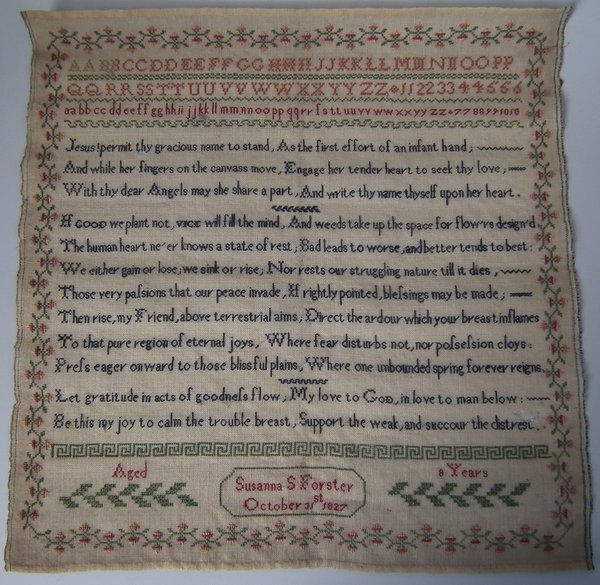 AABBCCDDEEFFGGHHIIJJKKLLMMNNOOPP
QQRRSSTTUUVVWWXXYYZZ 112233445566
aabbccddeeffgghhiijjkkllmmnnooppqqrrsſttuuvvwwxxyyzz 77 88 99 1010
Jesus! permit thy gracious name to stand, As the first effort of an infant hand;
And while her fingers on the canvass move, Engage her tender heart to seek thy love;
With thy dear Angels may she share a part, And write thy name thyself upon her heart.
If GOOD we plant not, VICE will fill the mind, And weeds take up the space for flow'rs design'd
The human heart ne'er knows a state of rest; Bad leads to worse, and better tends to best:
We either gain or lose; we sink or rise; Nor rests our struggling nature till it dies,
Those very paſsions that our peace invade, If rightly pointed, bleſsings may be made;
Then rise, my Friend, above terrestrial aims; Direct the ardour which your breast inflames
To that pure region of eternal joys, Where fear disturbs not, nor poſseſsion cloys:
Preſs eager onward to those blissful plains, Where one unbounded spring forever reigns.
Let gratitude in acts of goodneſs flow, My love to GOD, in love to man below:
Be this my joy to calm the trouble breast, Support the weak, and succour the distrest.
Aged 8 Years
Susanna S Forster
October 31st 1827